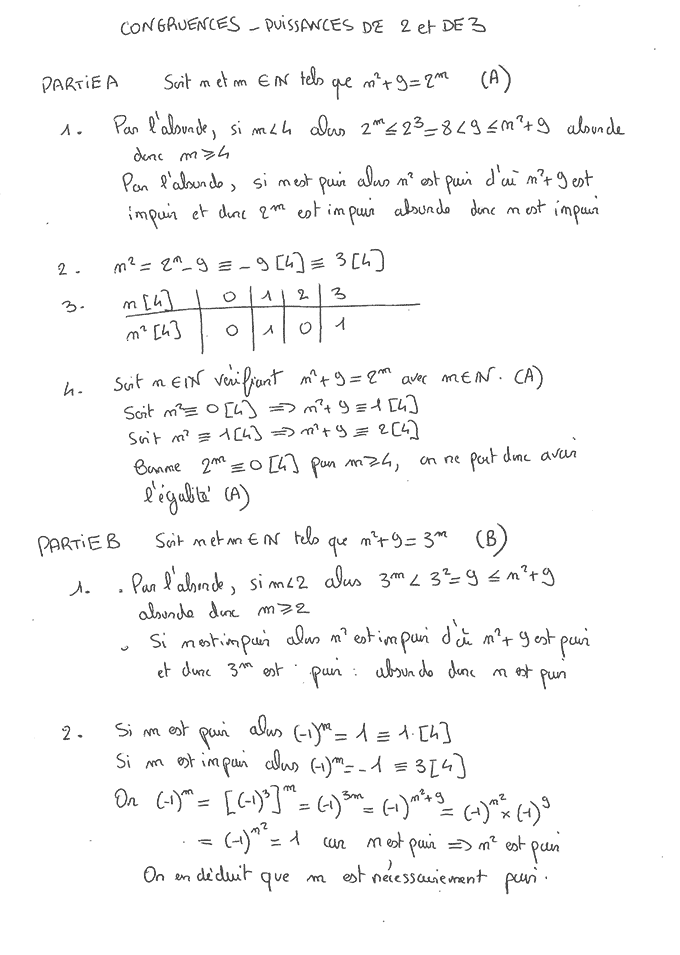 CONGRUENCES – PUISSANCES DE 2 et DE 3
PARTIE A Soit n et m ∈ ℕ tels que n²+9=2^m (A)
1. Par l'absurde, si m<4 alors 2^m ≤ 2³=8<9 ≤ n²+9 absurde
donc m ≥ 4
Par l'absurde, si n est pair alors n² est pair d'où n²+9 est
impair et donc 2^m est impair absurde donc n est impair
2. n² = 2^m - 9 ≡ -9 [4] ≡ 3 [4]
3. n [4] 0 1 2 3
n² [4] 0 1 0 1
4. Soit n ∈ ℕ vérifiant n²+9=2^m avec m ∈ ℕ. (A)
Soit n² ≡ 0 [4] => n²+9 ≡ 1 [4]
Soit n² ≡ 1 [4] => n²+9 ≡ 2 [4]
Comme 2^m ≡ 0 [4] pour m ≥ 4, on ne peut donc avoir
l'égalité (A)
PARTIE B Soit n et m ∈ ℕ tels que n²+9=3^m (B)
1. . Par l'absurde, si m<2 alors 3^m < 3²=9 ≤ n²+9
absurde donc m ≥ 2
. Si n est impair alors n² est impair d'où n²+9 est pair
et donc 3^m est pair : absurde donc n est pair
2. Si m est pair alors (-1)^m = 1 ≡ 1 [4]
Si m est impair alors (-1)^m = -1 ≡ 3 [4]
Or (-1)^m = [(-1)³]^m = (-1)^3m = (-1)^n²+9 = (-1)^n² × (-1)^9
= (-1)^n² = 1 car n est pair => n² est pair
On en déduit que m est nécessairement pair.